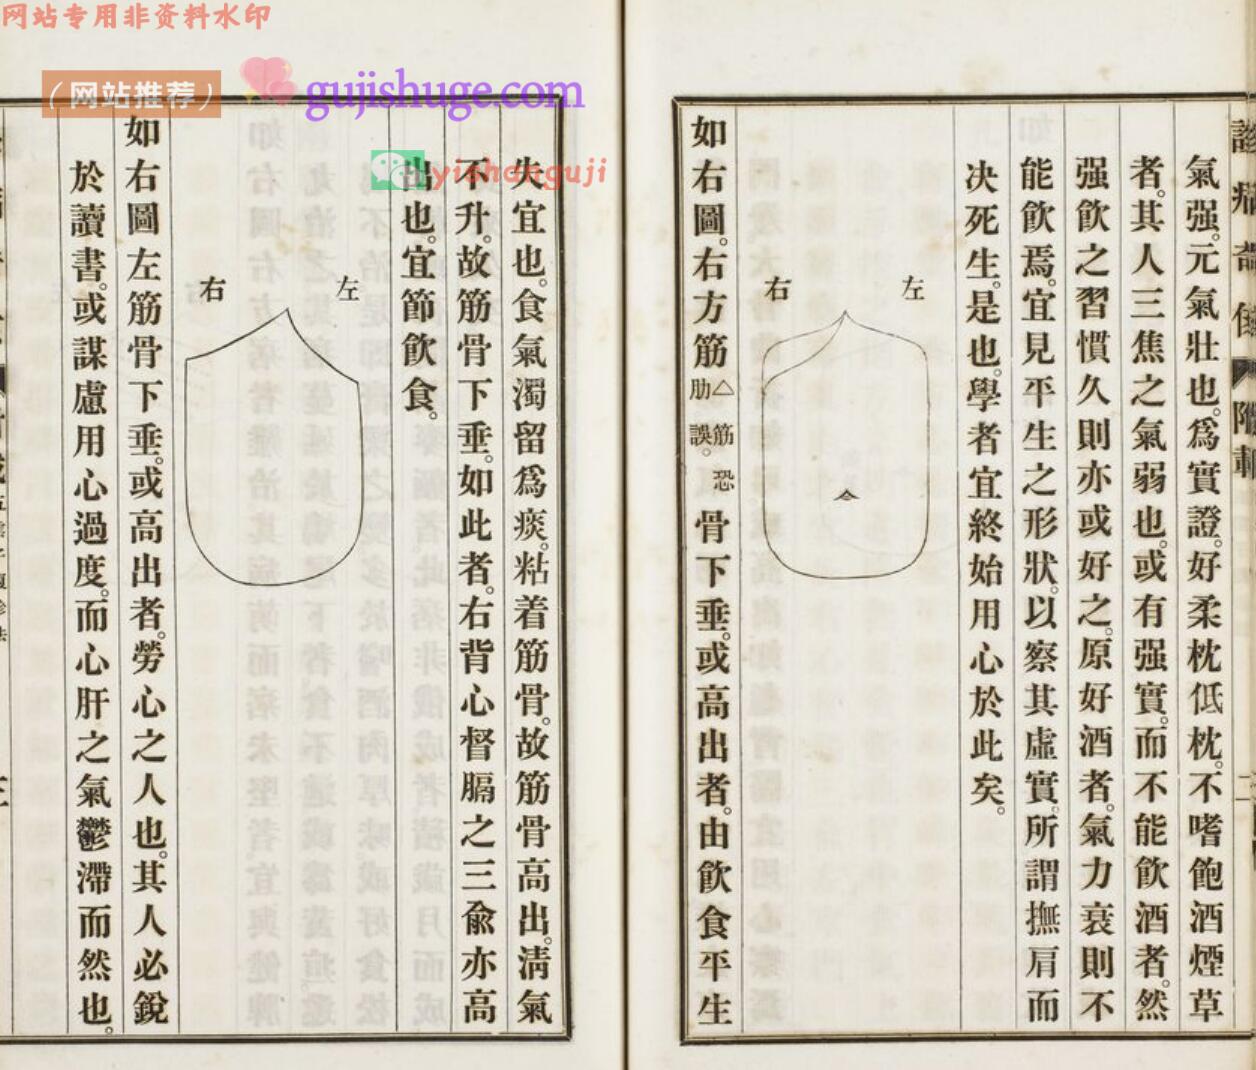 网站专用非资料水印
（网站推荐）
gujishuge.com
yishanguji
氣强。元氣壯也。爲實證。好柔枕低枕。不嗜飽酒煙草
者。其人三焦之氣弱也。或有强實。而不能飮酒者。然
强飮之習慣久則亦或好之。原好酒者。氣力衰則不
能飮焉。宜見平生之形狀。以察其虛實。所謂撫肩而
决死生。是也。學者宜終始用心於此矣。
左
右
如右圖。右方筋△筋恐肋誤。骨下垂。或高出者。由飮食平生
失宜也。食氣濁留爲痰。粘着筋骨。故筋骨高出。淸氣
不升。故筋骨下垂。如此者。右背心督膈之三兪亦高
出也。宜節飮食。
左
右
如右圖左筋骨下垂。或高出者。勞心之人也。其人必銳
於讀書。或謀慮用心過度。而心肝之氣鬱滯而然也。